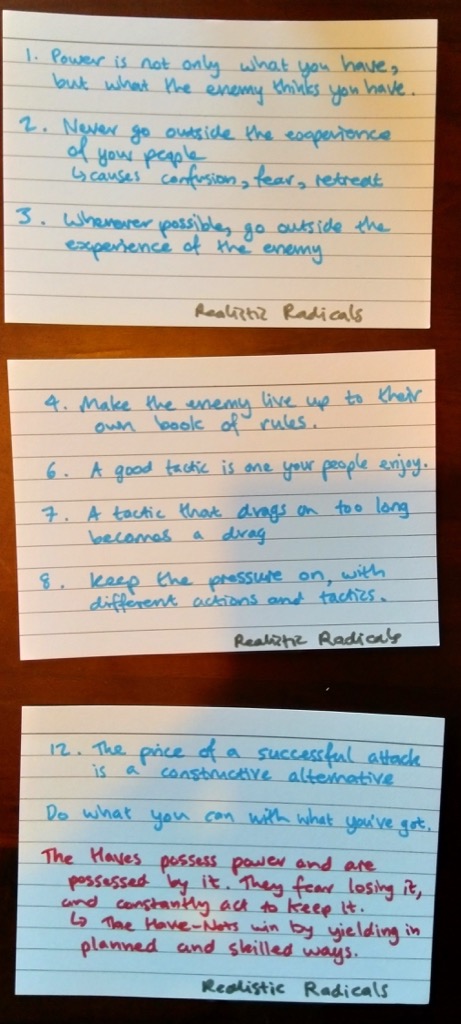 1. Power is not only what you have,
but what the enemy thinks you have.
2. Never go outside the experience
of your people
↳ causes confusion, fear, retreat
3. Whenever possible, go outside the
experience of the enemy
Realistic Radicals
4. Make the enemy live up to their
own book of rules.
6. A good tactic is one your people enjoy.
7. A tactic that drags on too long
becomes a drag
8. Keep the pressure on, with
different actions and tactics.
Realistic Radicals
12. The price of a successful attack
is a constructive alternative
Do what you can with what you've got.
The Haves possess power and are
possessed by it. They fear losing it,
and constantly act to keep it.
↳ The Have-Nots win by yielding in
planned and skilled ways.
Realistic Radicals